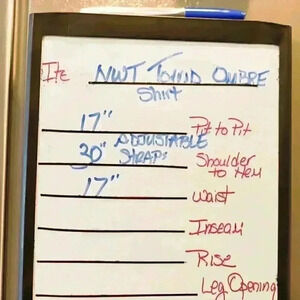 Ite NWT Torrid Ombre
Shirt
17" Pit to Pit
ADJUSTABLE
30" STRAPS Shoulder
to Hem
17" Waist
Inseam
Rise
Leg Opening